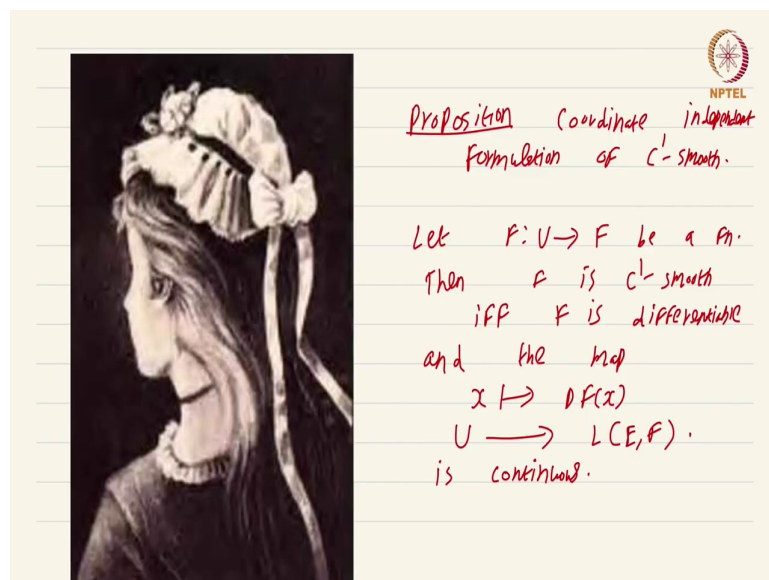 NPTEL
Proposition Coordinate independent
Formulation of C¹- smooth.
Let F: U → F be a fn.
Then F is C¹- smooth
iff F is differentiable
and the map
x ↦ DF(x)
U ⟶ L(E,F).
is continuous.